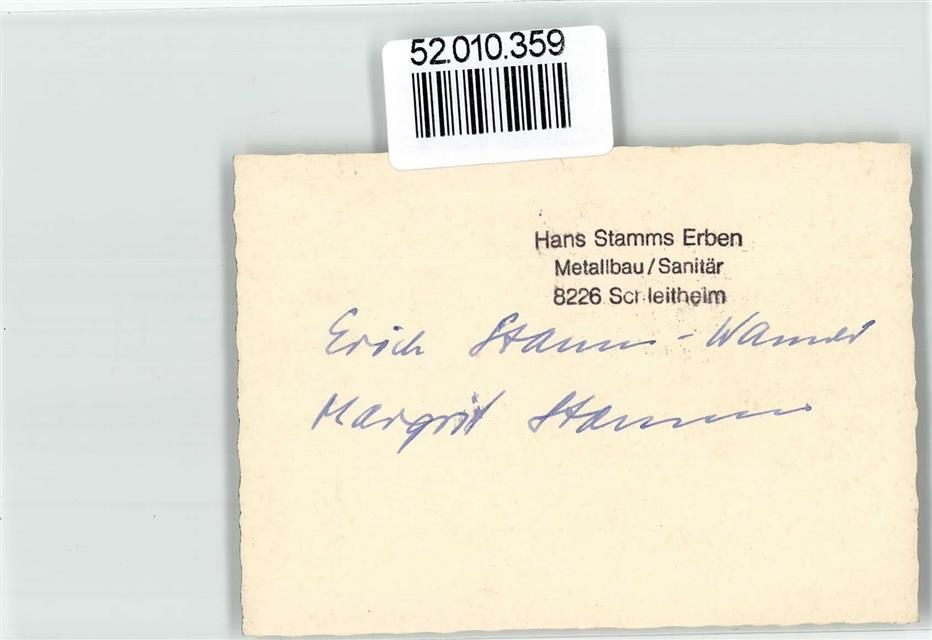 52.010.359
Hans Stamms Erben
Metallbau/Sanitär
8226 Schleitheim
Erich Stamm -
Margrit Stamm